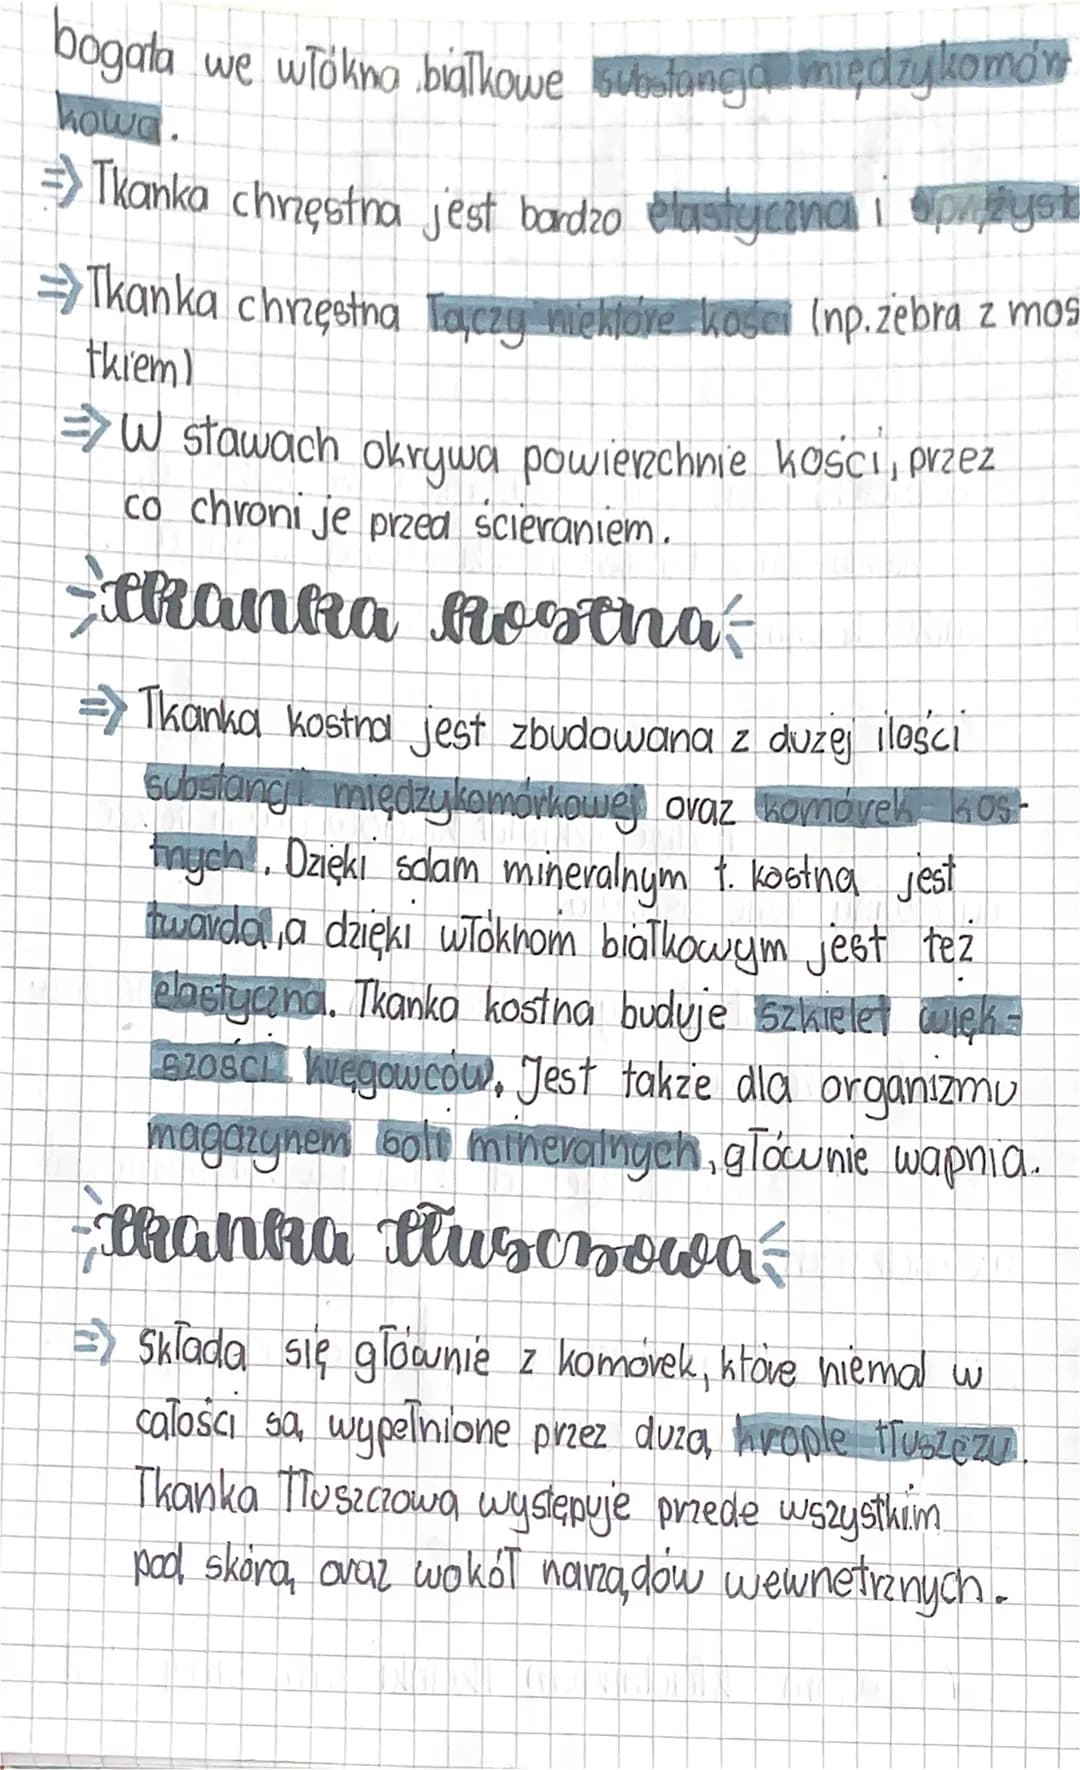 bogata we włókna białkowe substancja międzykomór
kowa.
⇒ Tkanka chrzęstna jest bardzo elastyczna i sprężyst
⇒ Tkanka chrzęstna łączy niektóre kości (np. żebra z mos
tkiem)
⇒ W stawach okrywa powierzchnie kości, przez
co chroni je przed ścieraniem.
tkanka kostna
⇒ Tkanka kostna jest zbudowana z dużej ilości
substancji międzykomórkowej oraz komórek kos-
tnych. Dzięki solom mineralnym t. kostna jest
twarda, a dzięki włóknom białkowym jest też
elastyczna. Tkanka kostna buduje szkielet więk-
szości kręgowców. Jest także dla organizmu
magazynem soli mineralnych, głównie wapnia.
tkanka tłuszczowa
⇒ Składa się głównie z komórek, które niemal w
całości są wypełnione przez dużą krople tłuszczu.
Tkanka tłuszczowa występuje przede wszystkim
pod skórą oraz wokół narządów wewnętrznych.